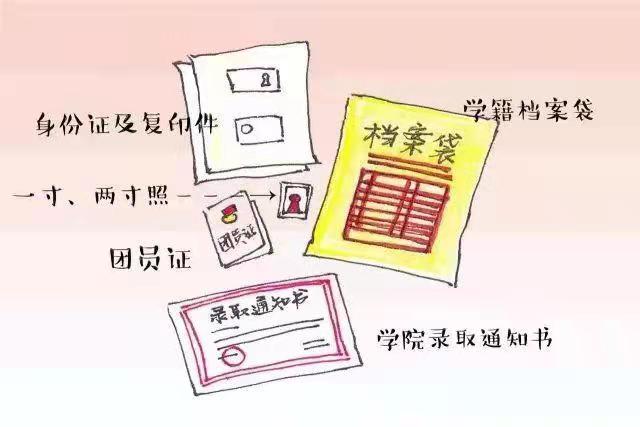 身份证及复印件
学籍档案袋
档案袋
一寸、两寸照
团员证
团员证
录取通知书
学院录取通知书